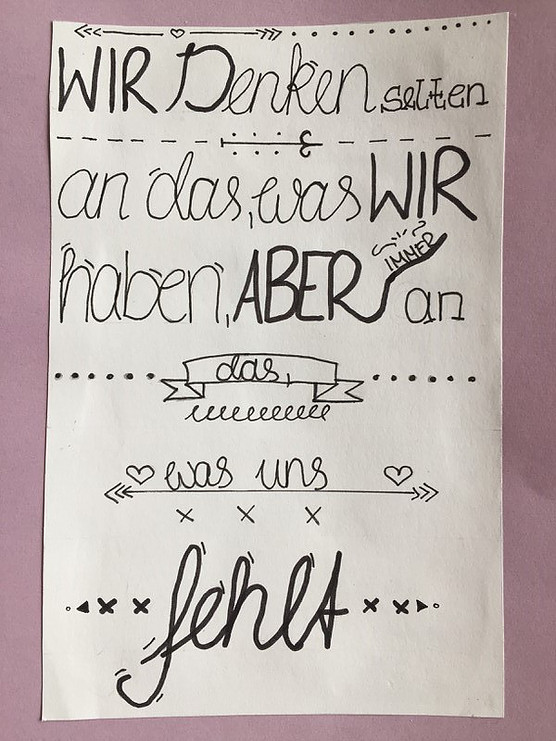 WIR Denken selten
an das, was WIR
haben, ABER IMMER an
das,
was uns
fehlt